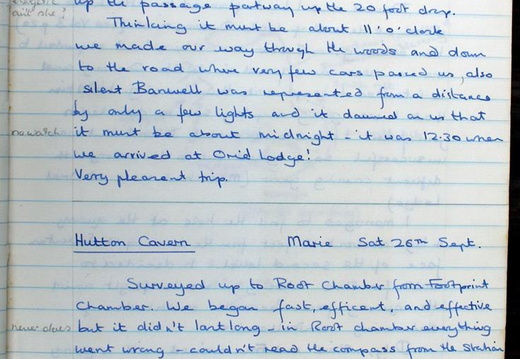 up the passage partway up the 20 foot drop.
and she!
Thinking it must be about 11 'o' clock
we made our way through the woods and down
to the road where very few cars passed us, also
silent Banwell was represented from a distance
by only a few lights and it dawned on us that
no watch it must be about midnight - it was 12.30 when
we arrived at Orid Lodge!
Very pleasent trip.
Hutton Cavern Marie Sat 26th Sept.
Surveyed up to Root Chamber from Footprint
Chamber. We began fast, efficent, and effective
never does but it didn't last long - in Root chamber everything
went wrong - couldn't read the compass from the Station